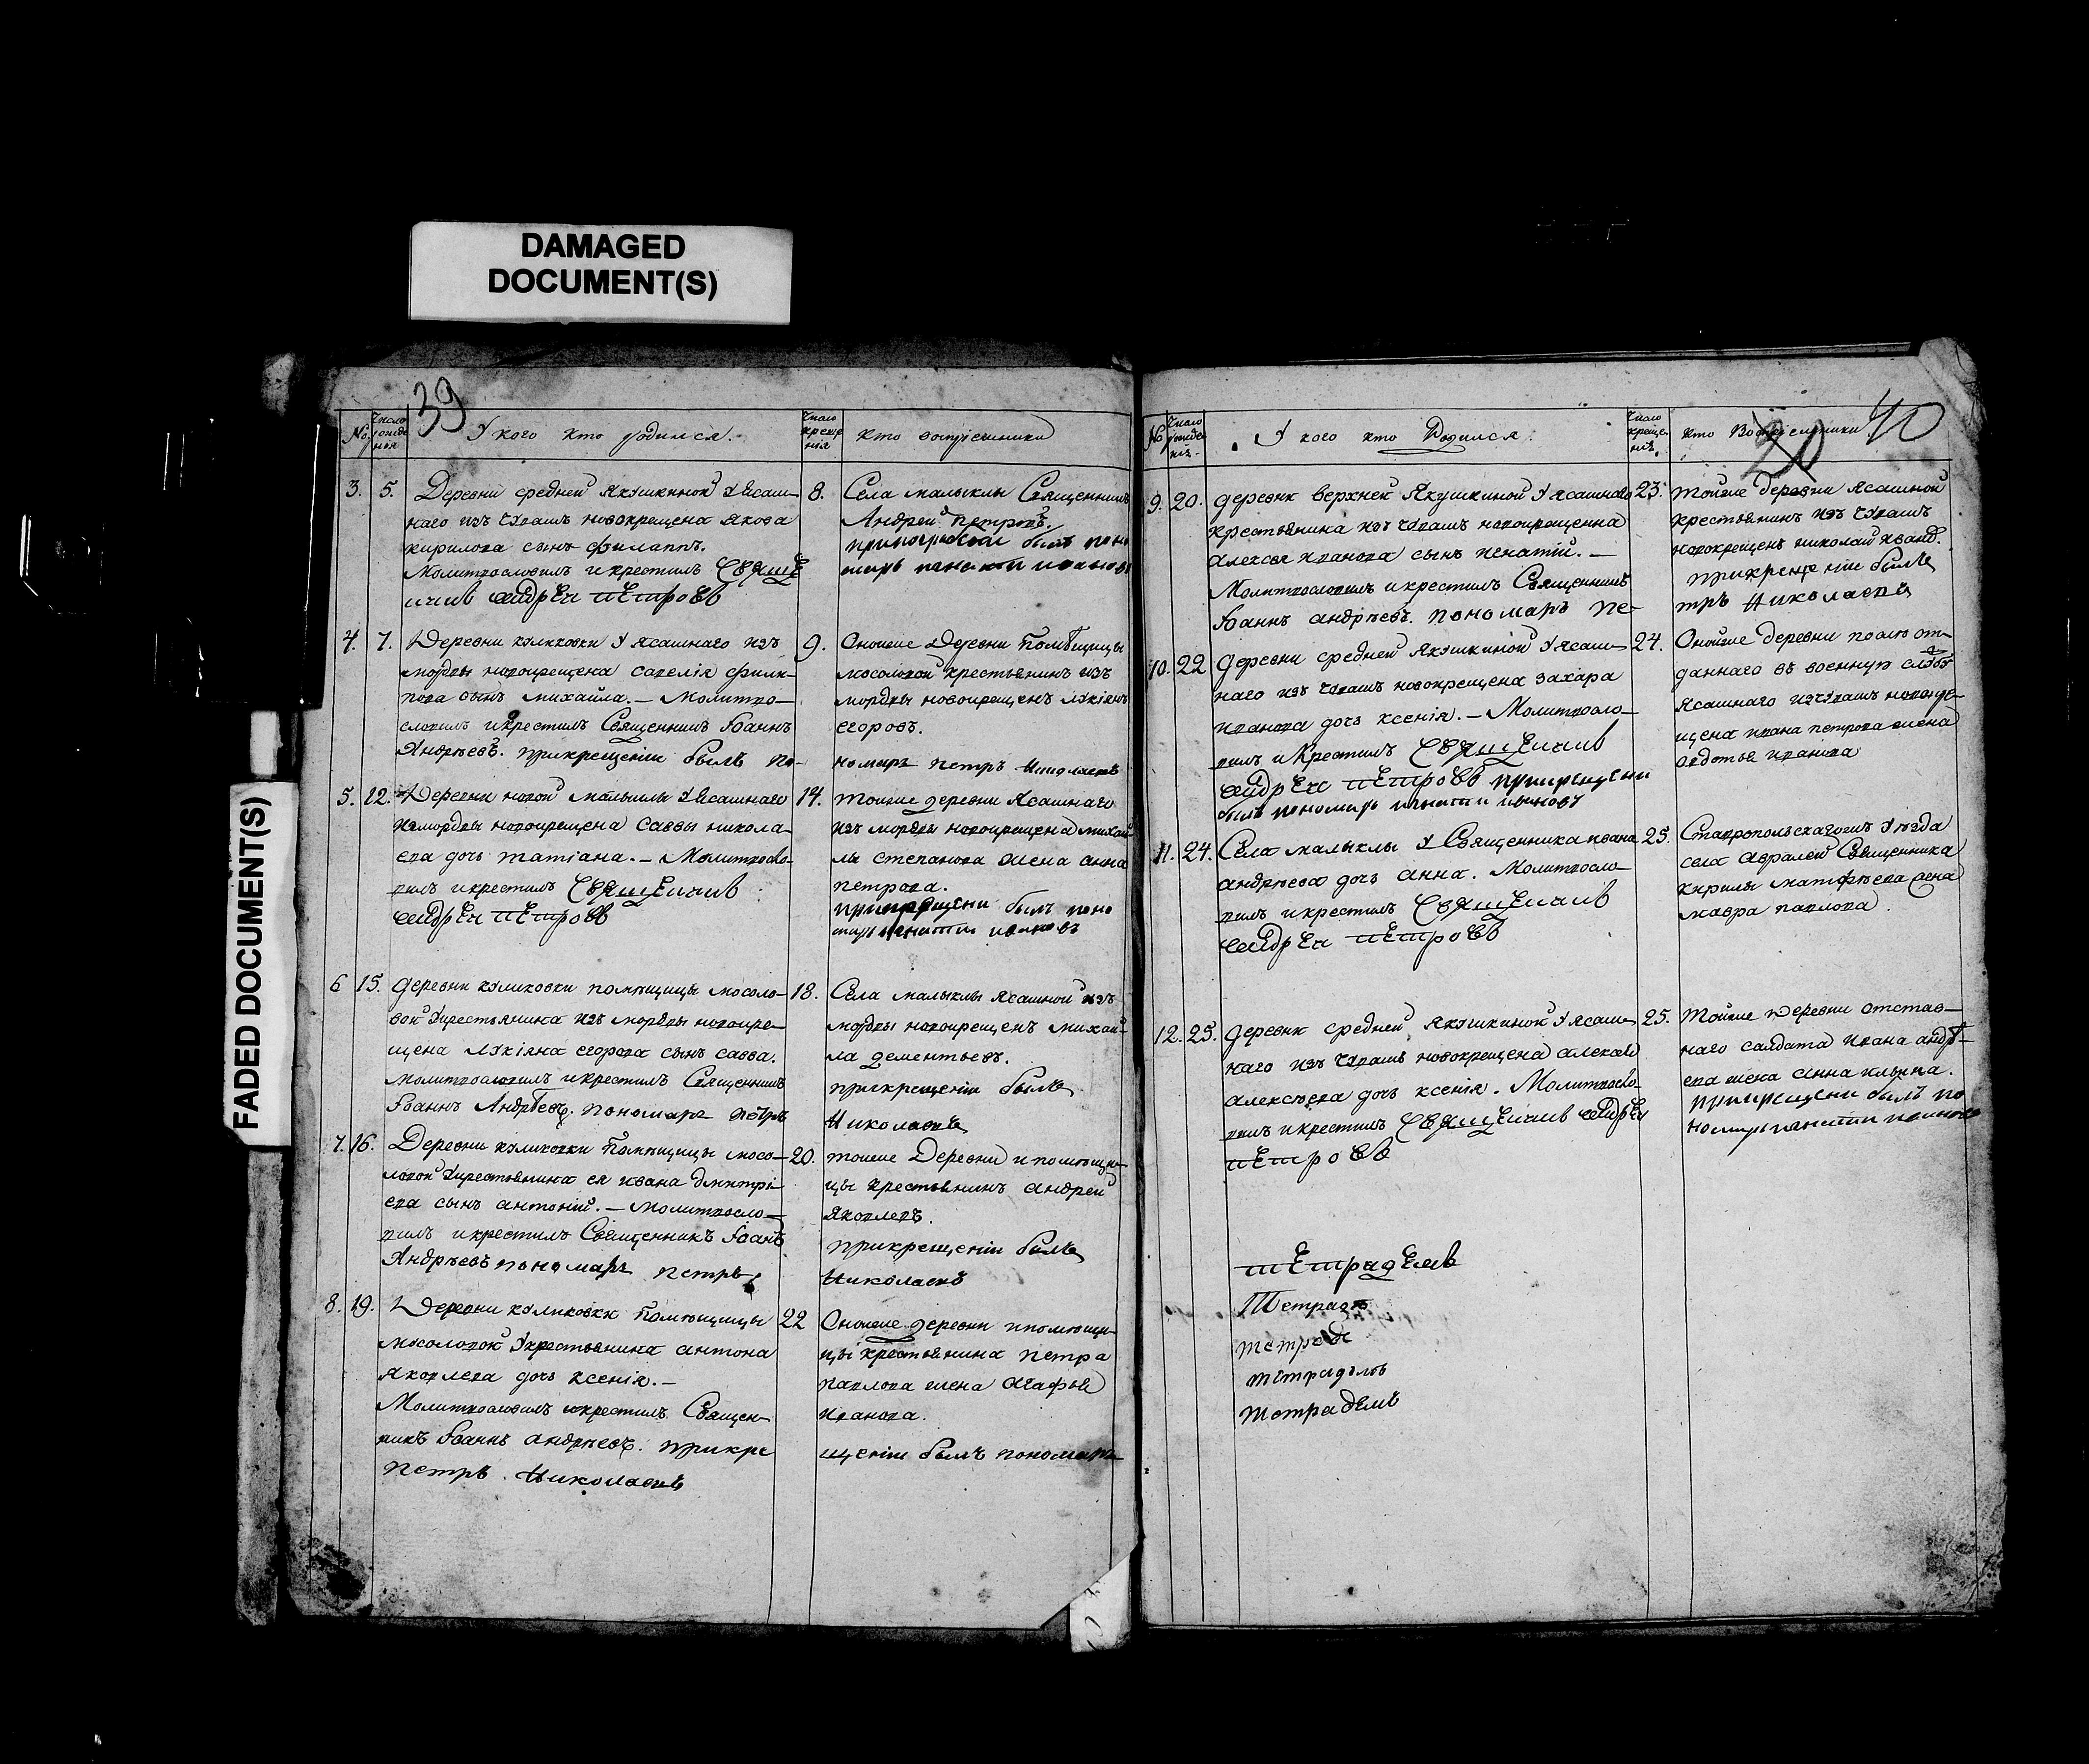 DAMAGED
DOCUMENT(S)
FADED DOCUMENT(S)
39
No
Число рожде ния
У кого кто родился.
Число креще ния
кто восприемники
3. 5.
Деревни средней Якушкиной У Ясаш-
наго изъ Чувашъ новокрещена Якова
кирилова сынъ филиппъ.
Молитвословилъ и крестилъ Свяще
нникъ андреи петровъ
8.
Села малыклы Священникъ
Андреи петровъ.
прикрещении былъ поно
марь игнатий ивановъ
4. 7.
Деревни куликовки У Ясашнаго изъ
мордвы новокрещена савелія филип-
пова сынъ михайла. — Молитво-
словилъ и крестилъ Священникъ Іоаннъ
Андрѣевъ. прикрещеніи былъ по-
9.
Оноиже Деревни Помѣщицы
мосоловой крестьянинъ изъ
мордвы новокрещенъ лукіянъ
егоровъ.
номарь петръ Николаевъ
5. 12.
Деревни новой малыклы У Ясашнаго
изъ мордвы новокрещена саввы никола-
ева дочь татіана. — Молитвосло-
вилъ и крестилъ Священникъ
андреи петровъ
14.
тоиже деревни Ясашнаго
изъ мордвы новокрещена михай-
лы степанова жена анна
петрова.
прикрещени былъ поно
марь игнатии ивановъ
6 15.
деревни куликовки помѣщицы мосоло-
вой Укрестьянина изъ мордвы новокре-
щена лукіяна егорова сынъ савва.
молитвословилъ и крестилъ Священникъ
Іоаннъ Андрѣевъ. пономарь петръ
18.
Села малыклы Ясашной изъ
мордвы новокрещенъ михай-
ла дементьевъ.
прикрещеніи былъ
Николаевъ
7. 16.
Деревни куликовки Помѣщицы мосо-
ловой Укрестьянина ея ивана дмитрі-
ева сынъ антоній. — Молитвосло-
вилъ и крестилъ Священникъ Іоаннъ
Андрѣевъ пономарь петръ
20.
тоиже Деревни и помѣщи-
цы крестьянинъ андреи
Яковлевъ.
прикрещеніи былъ
Николаевъ
8. 19.
Деревни куликовки Помѣщицы
мосоловой Укрестьянина антона
Яковлева дочь ксенія. —
Молитвословилъ и крестилъ Священ-
никъ Іоаннъ андрѣевъ. прикре
петръ. Николаевъ
22
Оноиже деревни и помѣщи-
цы крестьянина петра
павлова жена Агафья
иванова.
щеніи былъ пономарь
No
Число рожде ніѧ.
У кого кто Родился.
Число креще ніѧ.
кто Восприемники
20
40
9. 20.
деревни верхней Якушкиной У ясашнаго
крестьянина изъ Чувашъ новокрещенна
алексея иванова сынъ игнатій. —
Молитвословилъ и крестилъ Священникъ
Іоаннъ андрѣевъ. пономарь пе-
23.
тоиже деревни Ясашной
крестьянинъ изъ Чувашъ
новокрещенъ николай иванов.
прикрещеніи былъ
тръ Николаевъ
10. 22
деревни средней Якушкиной У ясаш-
наго изъ Чувашъ новокрещена захара
иванова дочь ксенія. — Молитвосло-
вилъ и крестилъ Священникъ
андреи петровъ прикрещени
былъ пономарь игнати ивановъ
24.
Оноиже деревни поаю от-
даннаго въ военную службу
Ясашнаго изъ Чувашъ новокре-
щена ивана петрова жена
авдотья иванова
11. 24.
Села малыклы У Священника ивана
андрѣева дочь анна. Молитвосло-
вилъ и крестилъ Священникъ
андреи петровъ
25.
Ставропольскагожъ Уѣзда
села Авралей Священника
кирилы матфѣева жена
мавра павлова.
12. 25.
деревни средней Якушкиной У ясаш-
наго изъ Чувашъ новокрещена алексея
алексѣева дочь ксенія. Молитвосло-
вилъ и крестилъ Священникъ андреи
петровъ
25.
Тоиже Деревни отстав-
наго салдата ивана андрѣ-
ева жена анна ильина.
прикрещени былъ по
номарь игнатии ивановъ
Тетрадемъ
Тетрадъ
тетраде
тетрадьмъ
тетрадемъ